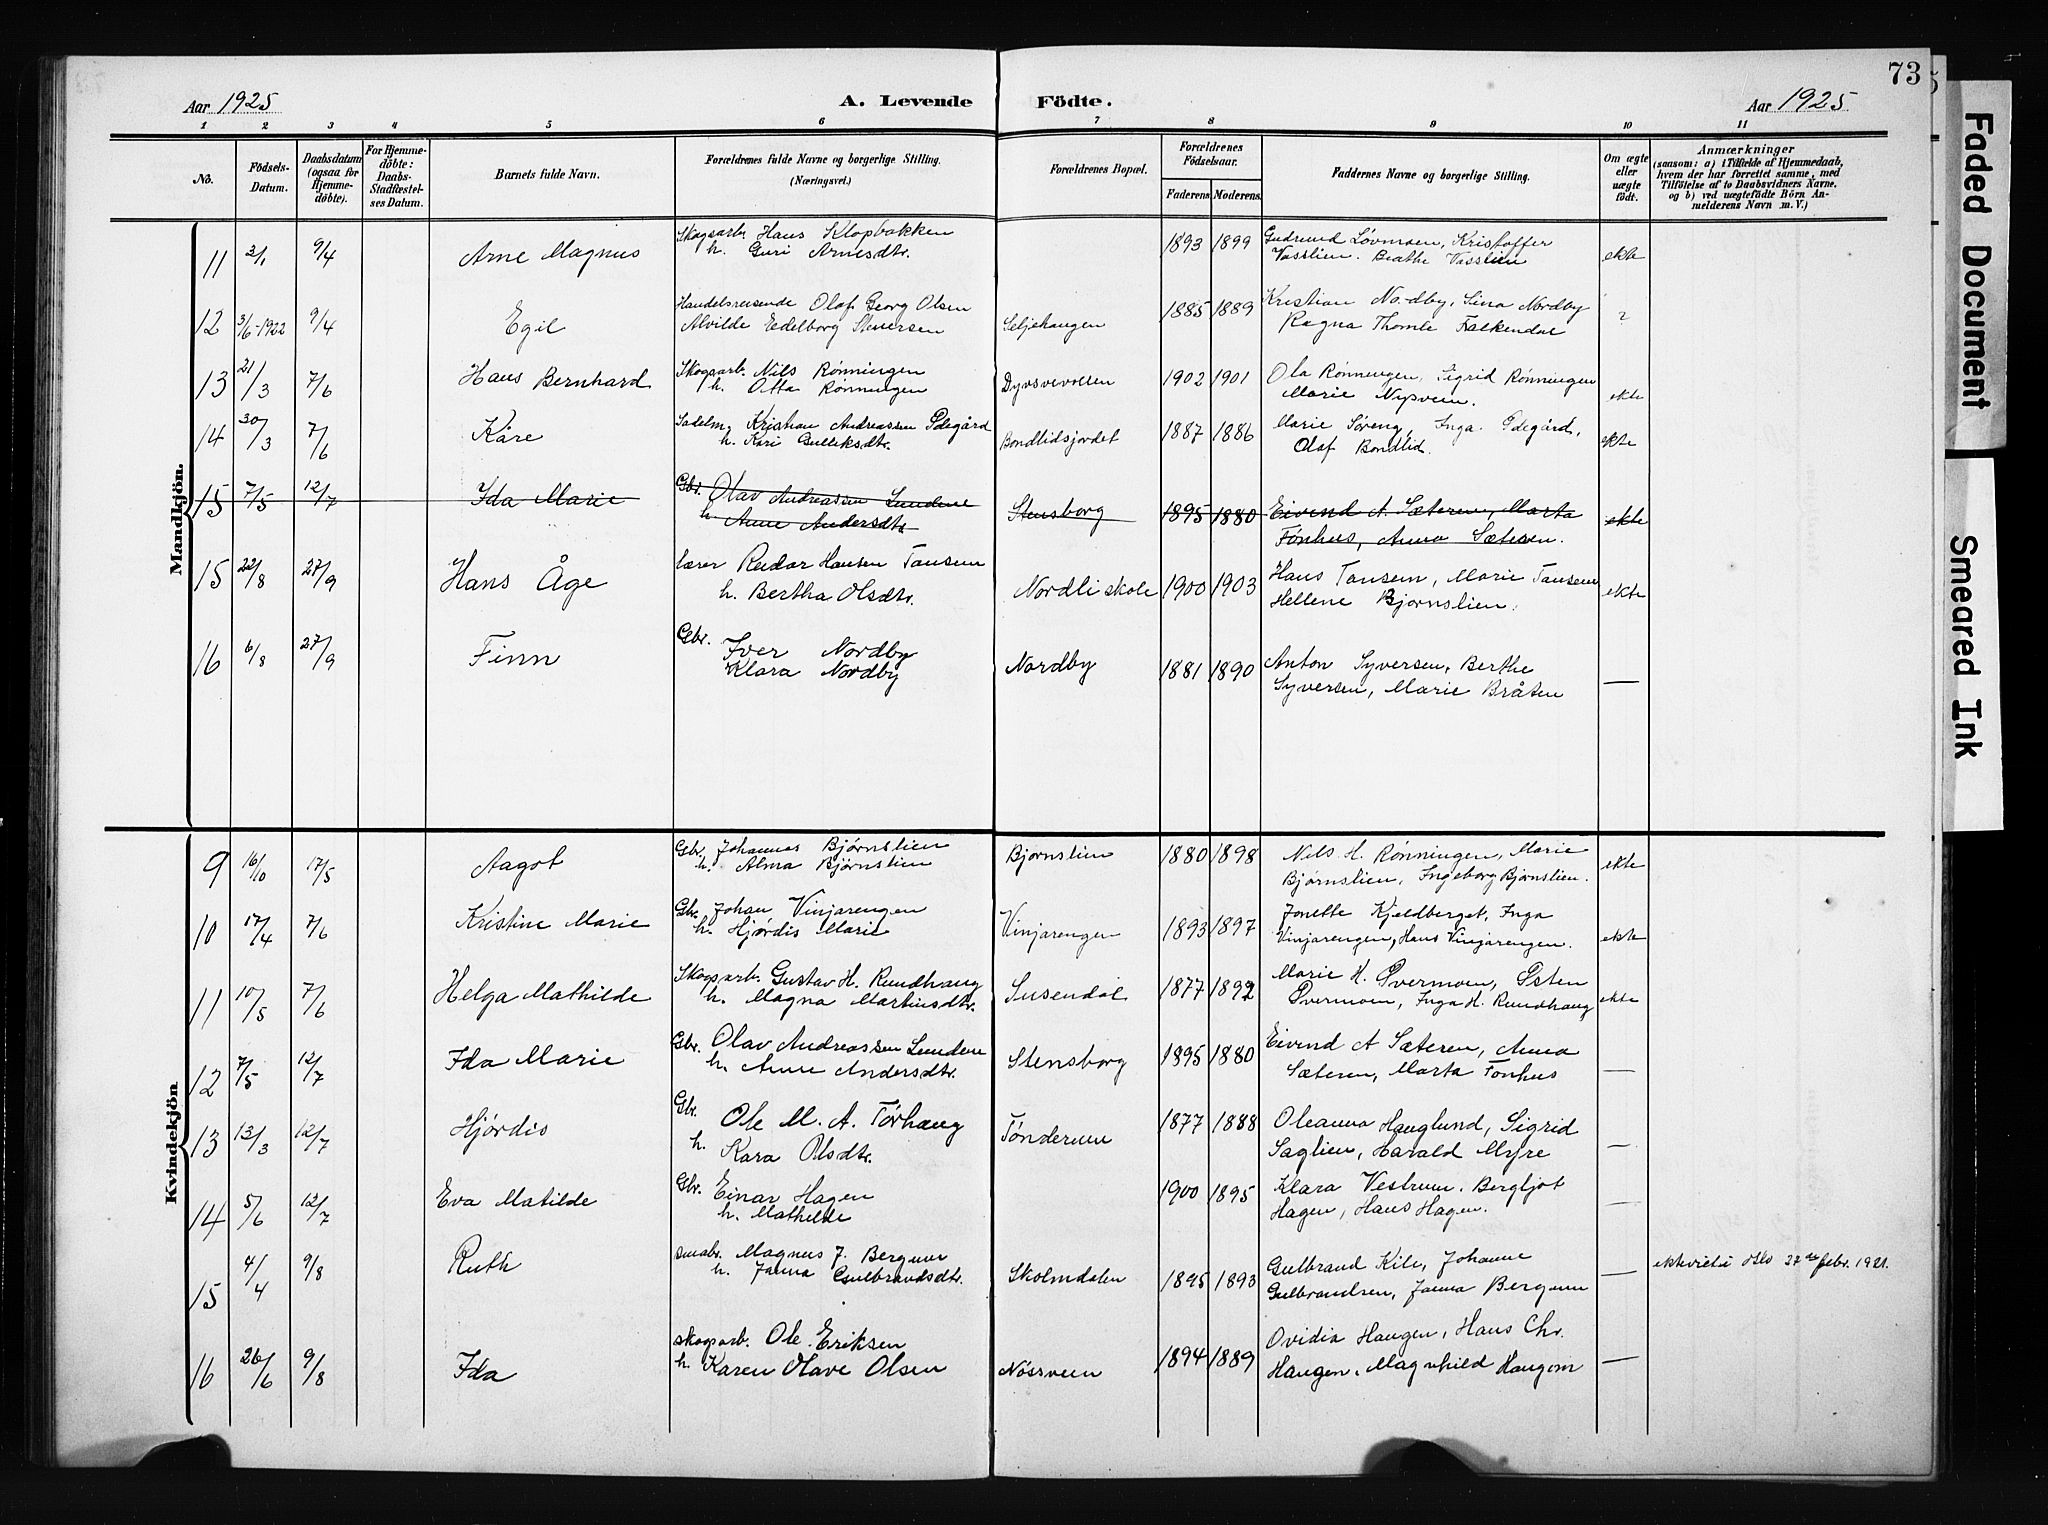 73
Aar 1925 A. Levende Födte. Aar 1925
1 2 3 4 5 6 7 8 9 10 11
No. Födsels-Datum. Daabsdatum (ogsaa for Hjemme-döbte). For Hjemme-döbte: Daabs-Stadfæstel-ses Datum. Barnets fulde Navn. Forældrenes fulde Navne og borgerlige Stilling. (Næringsvei.) Forældrenes Bopæl. Forældrenes Födselsaar. Faderens Moderens. Faddernes Navne og borgerlige Stilling. Om ægte eller uægte födt. Anmærkninger (saasom: a) i Tilfælde af Hjemmedaab, hvem der har forrettet samme, med Tilföielse af to Daabsvidners Navne, og b) ved uægtefödte Börn An-melderens Navn m. V.)
Mandkjön.
11 3/1 9/4 Arne Magnus Skogsarb. Hans Klopbakken 1893 1899 Gudrund Løvmoen, Kristoffer ekte
h. Guri Arnesdtr. Vasslien. Beathe Vasslien
12 3/6-1922 9/4 Egil Handelsreisende Olaf Georg Olsen Seljehaugen 1885 1889 Kristian Nordby, Lina Nordby ?
Alvilde Edelborg Stenersen Ragna Thomle Falkendal
13 21/3 7/6 Hans Bernhard Skogsarb. Nils Rønningen 1902 1901 Ola Rønningen, Sigrid Rønningen ekte
h. Otta Rønningen Marie Nysveen.
14 30/3 7/6 Kåre Sadelm. Kristian Andreassen Ødegård Bondlidsjordet 1887 1886 Marie Søreng, Inga Ødegård, ekte
h. Kari Gulliksdtr. Olaf Bondlid.
15 7/5 12/7 Ida Marie Gbr. Olav Andreassen Lundene Stensborg 1895 1880 Eivind A. Sæteren, Marta ekte
h. Anne Andersdtr. Fønhus, Anna Sæteren.
15 22/8 27/9 Hans Åge lærer Reidar Hansen Tansem Nordli skole 1900 1903 Hans Tansem, Marie Tansem ekte
h. Bertha Olsdtr. Hellene Bjørnslien.
16 6/8 27/9 Finn Gbr. Iver Nordby Nordby 1881 1890 Anton Syversen, Berthe —
Klara Nordby Syversen, Marie Bråten
Kvindekjön
9 16/10 17/5 Aagot Gbr. Johannes Bjørnslien Bjørnslien 1880 1898 Nils H. Rønningen, Marie ekte
h. Alma Bjørnslien Bjørnslien, Ingeborg Bjørnslien.
10 17/4 7/6 Kristine Marie Gbr. Johan Vinjarengen Vinjarengen 1893 1897 Jonette Kjeldberget, Inga ekte
h. Hjørdis Marie Vinjarengen, Hans Vinjarengen.
11 10/5 7/6 Helga Mathilde Skogsarb. Gustav H. Rundhaug Susendal 1877 1892 Marie H. Øvermoen, Østen ekte
h. Magna Martinsdtr. Øvermoen, Inga H. Rundhaug
12 7/5 12/7 Ida Marie Gbr. Olav Andreassen Lundene Stensborg 1895 1880 Eivind A Sæteren, Anna —
h. Anne Andersdtr. Sæteren, Marta Fønhus
13 13/3 12/7 Hjørdis Gbr. Ole M. A. Tørhaug Tønderum 1877 1888 Oleanna Hauglund, Sigrid —
h. Kara Olsdtr. Saglien, Harald Myre
14 5/6 12/7 Eva Matilde Gbr. Einar Hagen 1900 1895 Klara Vestrum, Bergljot —
h. Mathilde Hagen, Hans Hagen.
15 4/4 9/8 Ruth smabr. Magnus J. Bergum Skolmdalen 1895 1893 Gulbrand Kile, Johanne — ektevietsi Oslo febr. 1921.
h. Janna Gulbrandsdtr. Gulbrandsen, Janna Bergum
16 26/6 9/8 Ida Skogsarb. Ole Eriksen Nøssveen 1894 1889 Ovidia Haugen, Hans Chr. —
h. Karen Olave Olsen Haugen, Magnhild Haugom
Faded Document
Smeared Ink